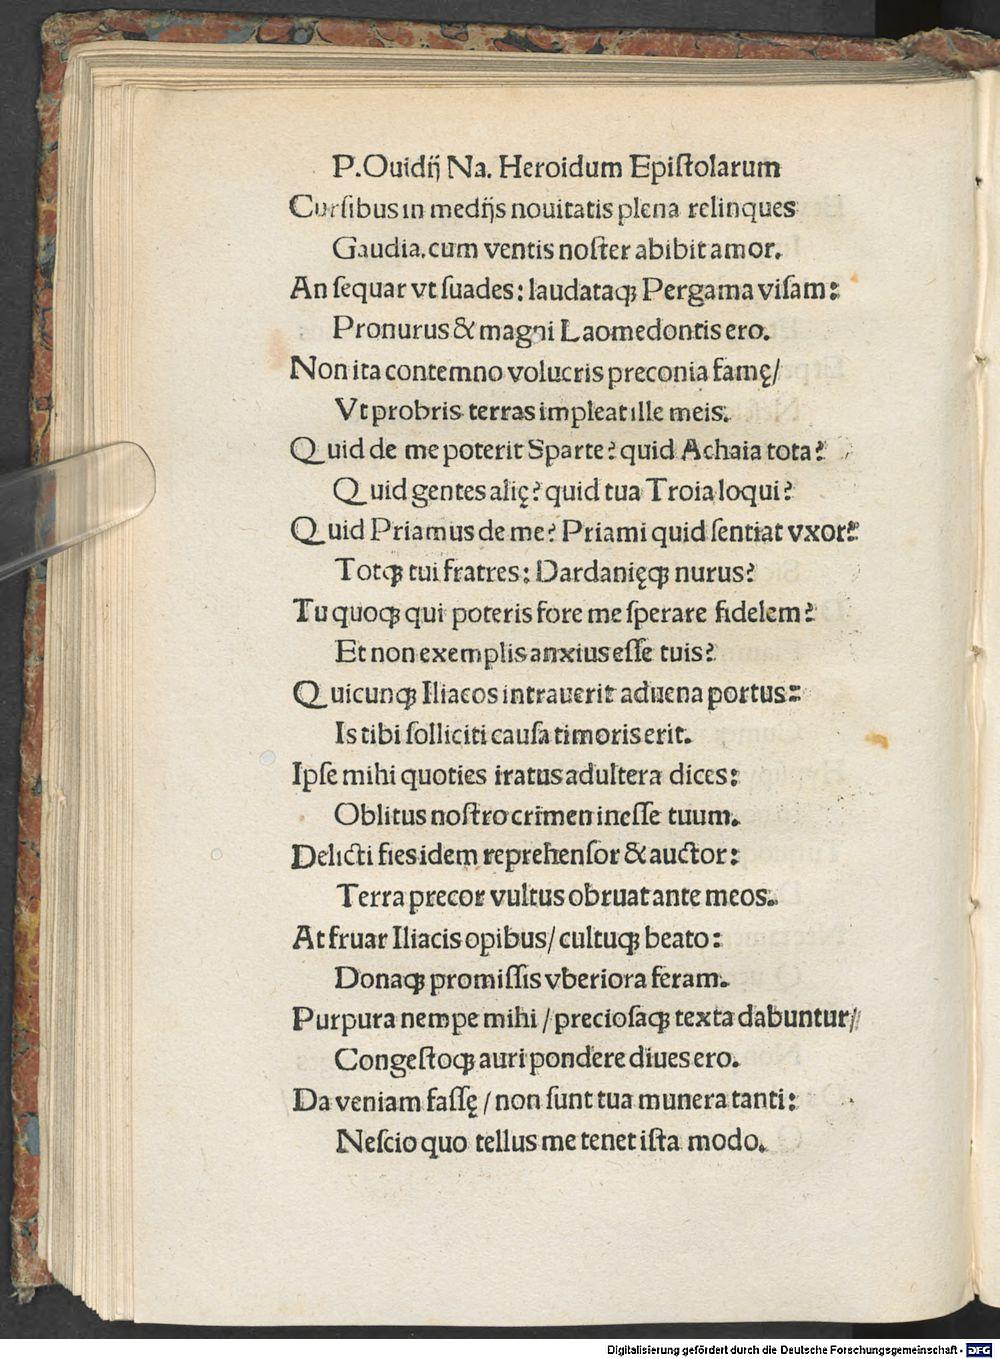 P.Ouidĳ Na. Heroidum Epiſtolarum
Curſibus in medĳs nouitatis plena relinques
Gaudia. cum ventis noſter abibit amor.
An ſequar vt ſuades: laudataqꝫ Pergama viſam:
Pronurus & magni Laomedontis ero.
Non ita contemno volucris preconia famę/
Vt probris terras impleat ille meis.
Quid de me poterit Sparte? quid Achaia tota?
Quid gentes alię? quid tua Troia loqui?
Quid Priamus de me? Priami quid ſentiat vxor?
Totqꝫ tui fratres: Dardanięqꝫ nurus?
Tu quoqꝫ qui poteris fore me ſperare fidelem?
Et non exemplis anxius eſſe tuis?
Quicunqꝫ Iliacos intrauerit aduena portus:
Is tibi ſolliciti cauſa timoris erit.
Ipſe mihi quoties iratus adultera dices:
Oblitus noſtro crimen ineſſe tuum.
Delicti fies idem reprehenſor & auctor:
Terra precor vultus obruat ante meos.
At fruar Iliacis opibus/ cultuqꝫ beato:
Donaqꝫ promiſſis vberiora feram.
Purpura nempe mihi / precioſaqꝫ texta dabuntur/
Congeſtoqꝫ auri pondere diues ero.
Da veniam faſſę / non ſunt tua munera tanti:
Neſcio quo tellus me tenet iſta modo.
Digitalisierung gefördert durch die Deutsche Forschungsgemeinschaft - DFG